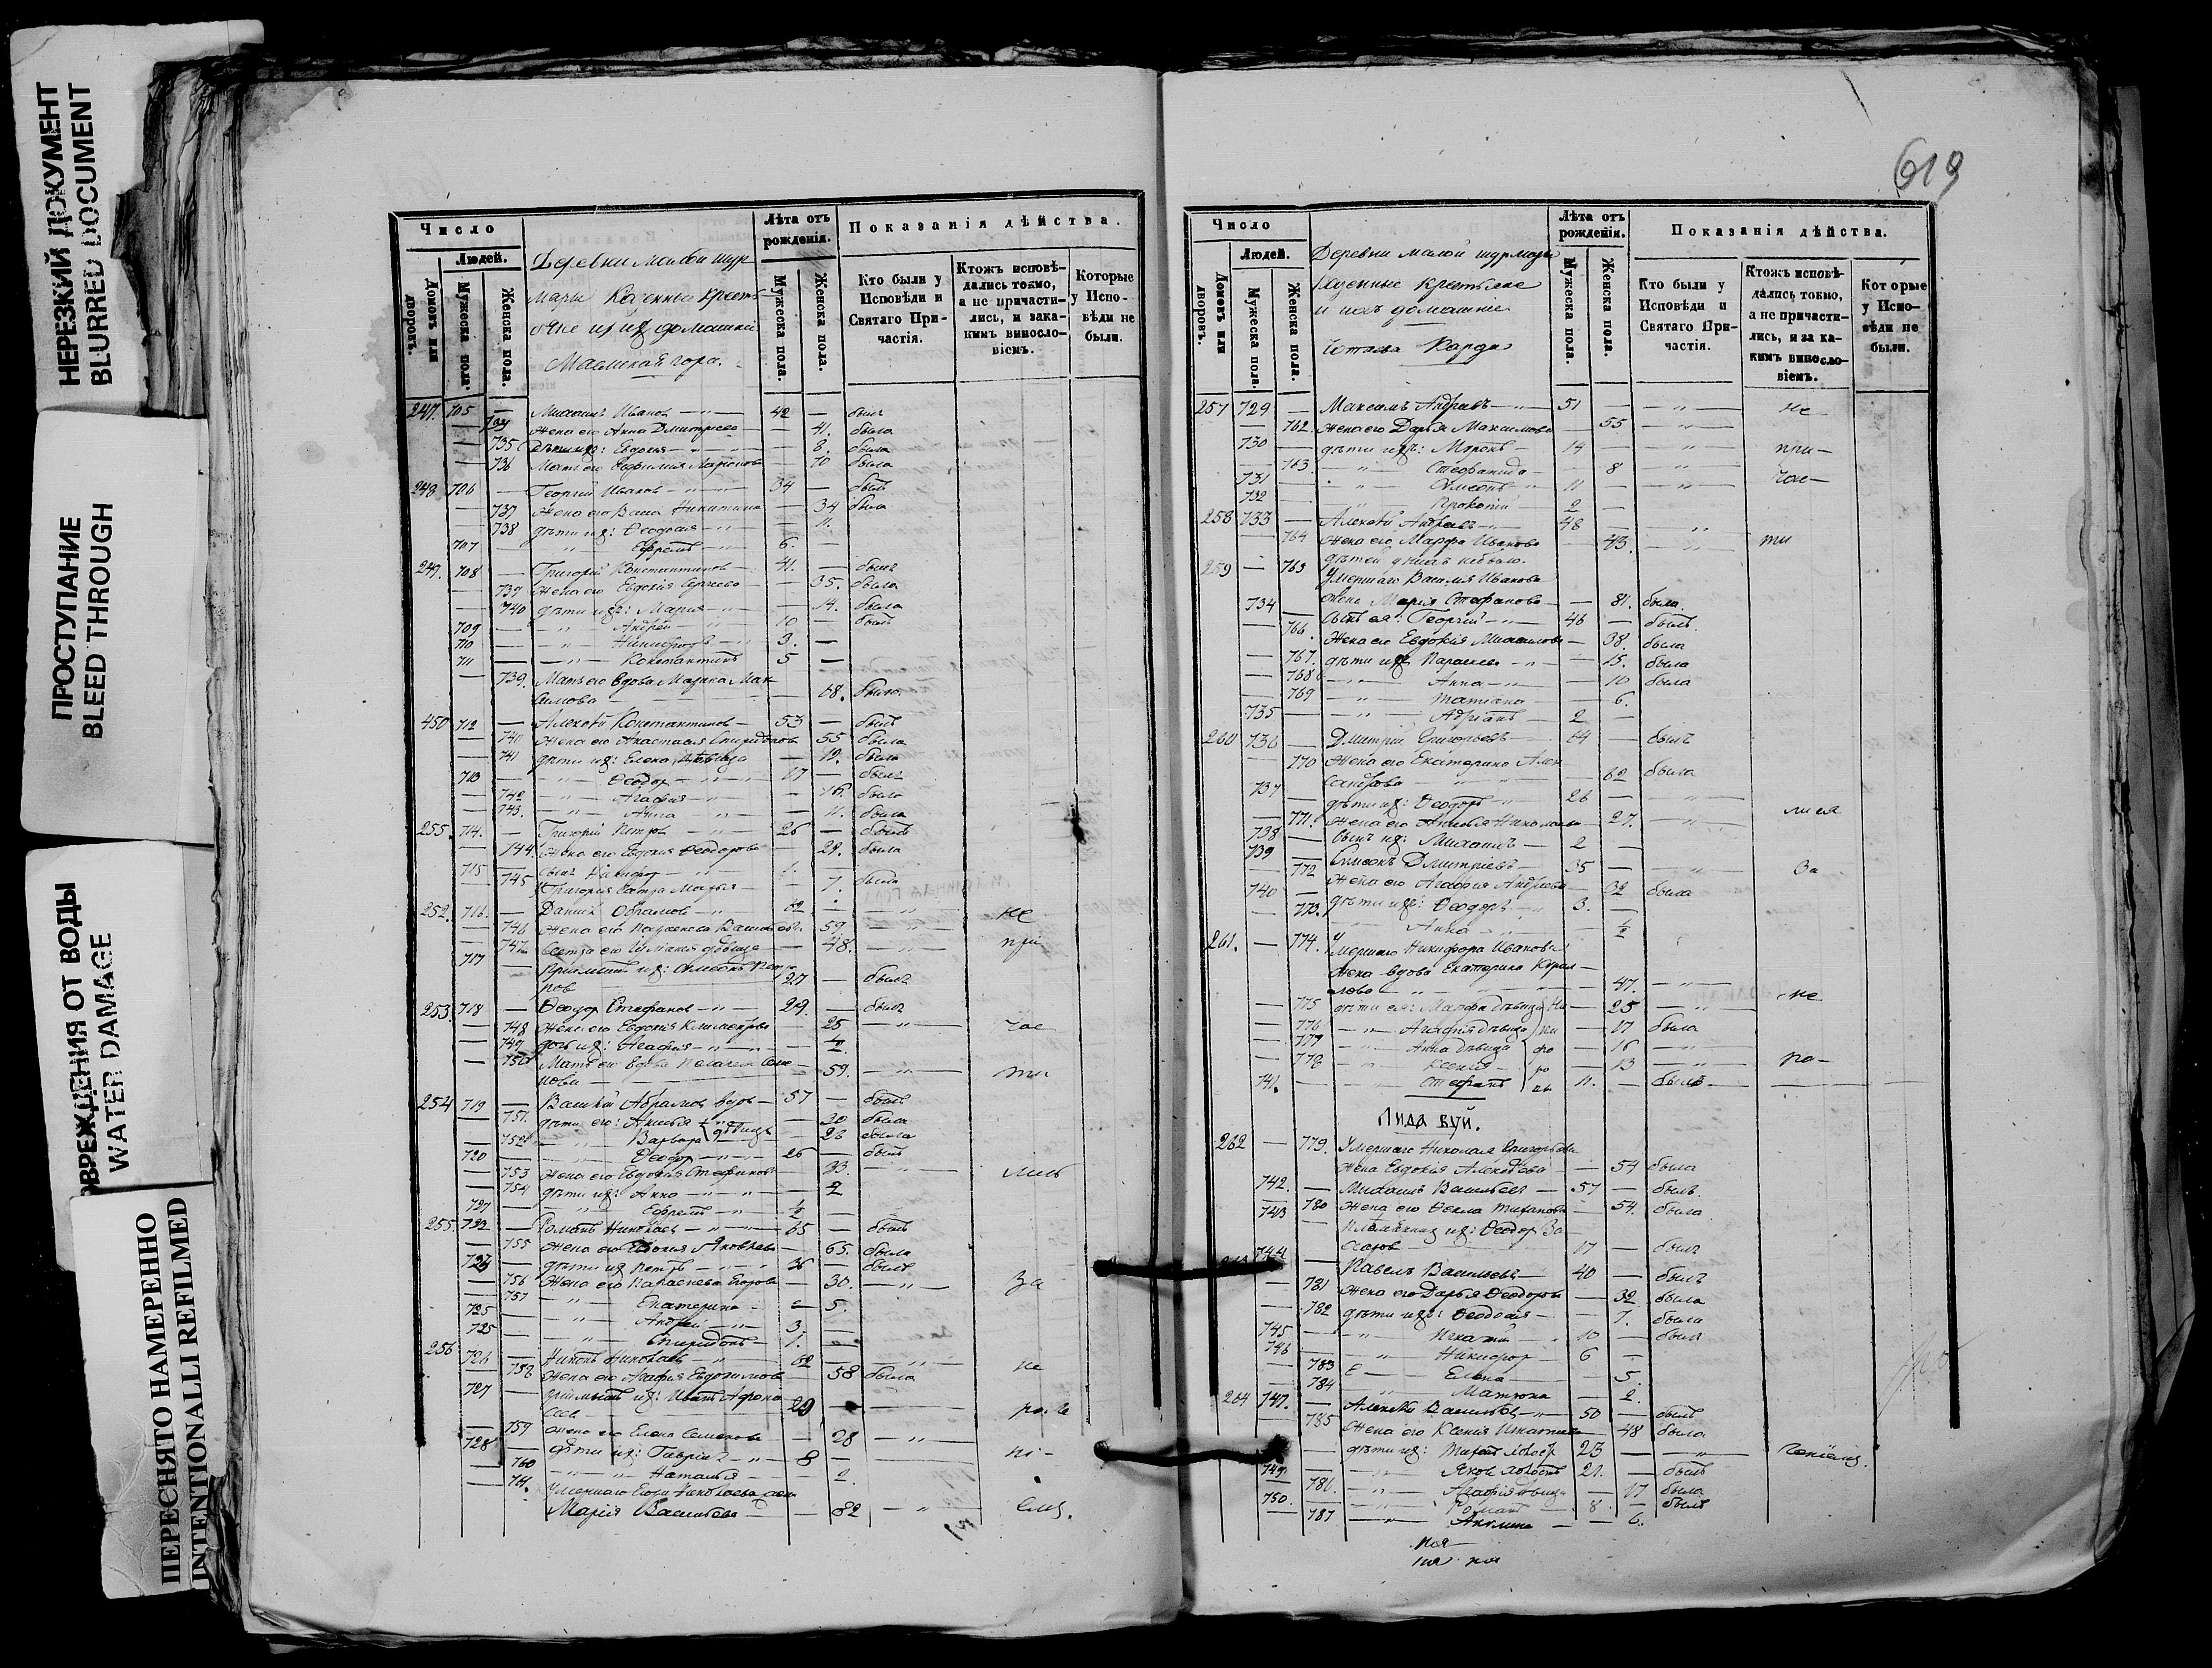 НЕРЕЗКИЙ ДОКУМЕНТ
BLURRED DOCUMENT
ПРОСТУПАНИЕ
BLEED THROUGH
ОВРЕЖДЕНИЯ ОТ ВОДЫ
WATER DAMAGE
ПЕРЕСНЯТО НАМЕРЕННО
INTENTIONALLI REFILMED
Число
Людей.
Домовъ или дворовъ.
Мужеска пола.
Женска пола.
Деревни малой шур
мачи Казенные крестья
не и ихъ домашніе
Лѣта отъ рожденія.
Мужеска пола.
Женска пола.
Показанія дѣйства.
Кто были у Исповѣди и Святаго Причастія.
Ктожъ исповѣдались токмо, а не причастились, и закакимъ винословіемъ.
Которые у Исповѣди не были.
247. 705 — Михаилъ Иванов — 42 — былъ
Жена его Анна Дмитриева — 41. была
735 Дѣти ихъ: Евдокия — 8. была
736 Мать его — 70 была
248 706 — Георгий Иванов — 34 — былъ
737 Жена его Васа Никитина — 34 была
738 дѣти ихъ: Феодосия — 11.
707 — Ефремъ — 6.
249. 708 — Григорий Константинов — 41. — былъ
739 Жена его Евдокия Сергеева — 35. была
740 дѣти ихъ: Мария — 14. была
709 — Андрей — 10 — былъ
710 — Никифоръ — 3. —
711 — Константинъ 5 —
739. Мать его вдова Марина Мак
симова — 68. была.
450 712 — Алексѣй Константинов — 53 — былъ
740 Жена его Анастасия Спиридонов 55 была
741 дѣти ихъ: Елена дѣвица — 19. была
713 — Феодор — 17 — былъ
742 — Агафия — 16. была
743. — Анна — 11. была
255. 714. — Григорий Петров — 26 — былъ
744. Жена его Евдокия Феодорова — 29. была
715 Сынъ Никифор — 1.
745 Григория сестра Марья — 7. была
252. 716. — Даниилъ Абрамов — 62 — не
746 Жена его Параскева — 59.
747. Сестра его дѣвица — 48. при
717 Приемышъ ихъ: Симеонъ Пет
ров 27 — былъ
253. 718 — Феодор Стефанов — 29. — былъ
748 Жена его Евдокия Климентова — 25 — час
749 дочь ихъ: Агафия — 1/2
750 Мать его вдова Пелагея Сим
нова — 59. ти
254 719 — Василий Абрамов вдов — 57 — былъ
751. дѣти его: Аксинья — 30 была
752 Варвара дѣвица — 23 была
720 Феодор — 26 — былъ
753 Жена его Евдокия Стефанова 23. лись
754 дѣти ихъ: Анна — 2
721 Ефремъ — 1/2
255. 722 — Романъ Николаев — 65 — былъ
755 Жена его Евдокия Яковлева — 65. была
723 дѣти ихъ Петръ — 36 — былъ
756 Жена его Параскева Егорова — 30. за
757 Екатерина — 5.
725 — Андрей — 3.
725 — Спиридонъ — 1.
256 726 — Никонъ Николаев — 62 — не
758 Жена его Агафия Евдокимова 58 была
727 Приемышъ ихъ: Иванъ Афона
сев — 29
759 Жена его Елена Симеонова — 28
728 дѣти ихъ: Гаврилъ — 8 —
760 Наталья — 2.
761. Умершаго Егора Николаева жена
Мария Васильева — 62
619
Число
Людей.
Домовъ или дворовъ.
Мужеска пола.
Женска пола.
Деревни малой шурмачи
Казенные Крестьяне
и ихъ домашніе
Лѣта отъ рожденія.
Мужеска пола.
Женска пола.
Показанія дѣйства.
Кто были у Исповѣди и Святаго Причастія.
Ктожъ исповѣдались токмо, а не причастились, и за какимъ винословіемъ.
Которые у Исповѣди не были.
257 729 — Максимъ Андреевъ — 51 — не
762. Жена его Дарья Максимова 55
730 — дѣти ихъ: Миронъ — 14 — при-
763. Стефанида — 8 час-
731 Симеонъ 11
732 Прокопий 2 —
258 733 — Алексѣй Андреевъ — 48 —
764 Жена его Марфа Иванова 43. ти
дѣтей у нихъ небыло.
259 — 765 Умершаго Василия Иванова
жена Мария Стефанова — 81. была.
734 Сынъ ея: Георгий — 46 — былъ.
766. Жена его Евдокия Михайлова — 38. была
767. дѣти ихъ Параскева — 15. была
768 Анна — 10 была
769 Татиана — 6.
735 — Адрианъ — 2 —
260 736 — Дмитрий Григорьевъ — 64 — былъ
770 Жена его Екатерина Алек
сандрова — 62 была
737 — дѣти ихъ: Феодоръ 26 —
771. Жена его Аксинья Николаева 27. лися
738 — Сынъ ихъ: Михаилъ — 2 —
739 Симеонъ Дмитриевъ — 35 — За
772 Жена его Агафия Андреева — 32 была
740 дѣти ихъ: Феодоръ — 3. —
773. Анна — 1/2
261. — 774. Умершаго Никифора Иванова
жена вдова Екатерина Кирил
лова — 47. не
775 дѣти ея: Марфа дѣвица — 25
776 Агафия дѣвица — 17 была
777 Анна дѣвица — 16
778 Ксения — 13 ра-
741. — Стефанъ 11. — былъ
Лида вуй.
262 — 779. Умершаго Николая Григорьева
жена Евдокия Алексѣева — 54 была
742. — Михаилъ Васильев — 57 — былъ.
780 Жена его Фекла Тихонова — 54. была
743 Племянник ихъ: Феодор За
харов — 17 — былъ
744 Павелъ Васильевъ — 40 — былъ
781 Жена его Дарья Феодорова — 32 была
782 дѣти ихъ: Феодосия — 7. была
745 — Игнатий — 10 — былъ
746 — Никифор — 6 —
783 Елена — 5.
784 Матрона — 2.
264 747. — Алексѣй Васильев — 50 — былъ
785 Жена его Ксения Игнатиева — 48 была
дѣти ихъ: Тихон холост 23
749. Яков холостъ 21. — былъ
786. Агафия дѣвица — 17 была
750. Романъ — 8. — былъ
787 Акилина — 6.